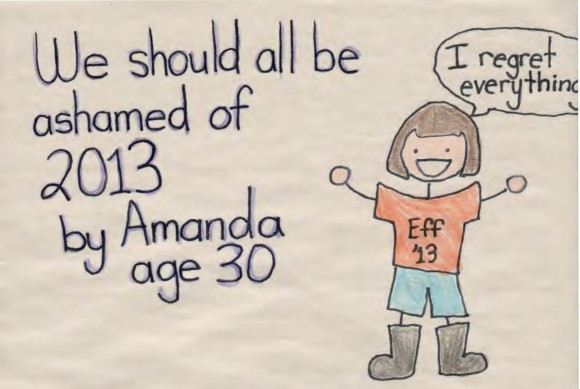 We should all be
ashamed of
2013
by Amanda
age 30
I regret
everything
Eff
'13